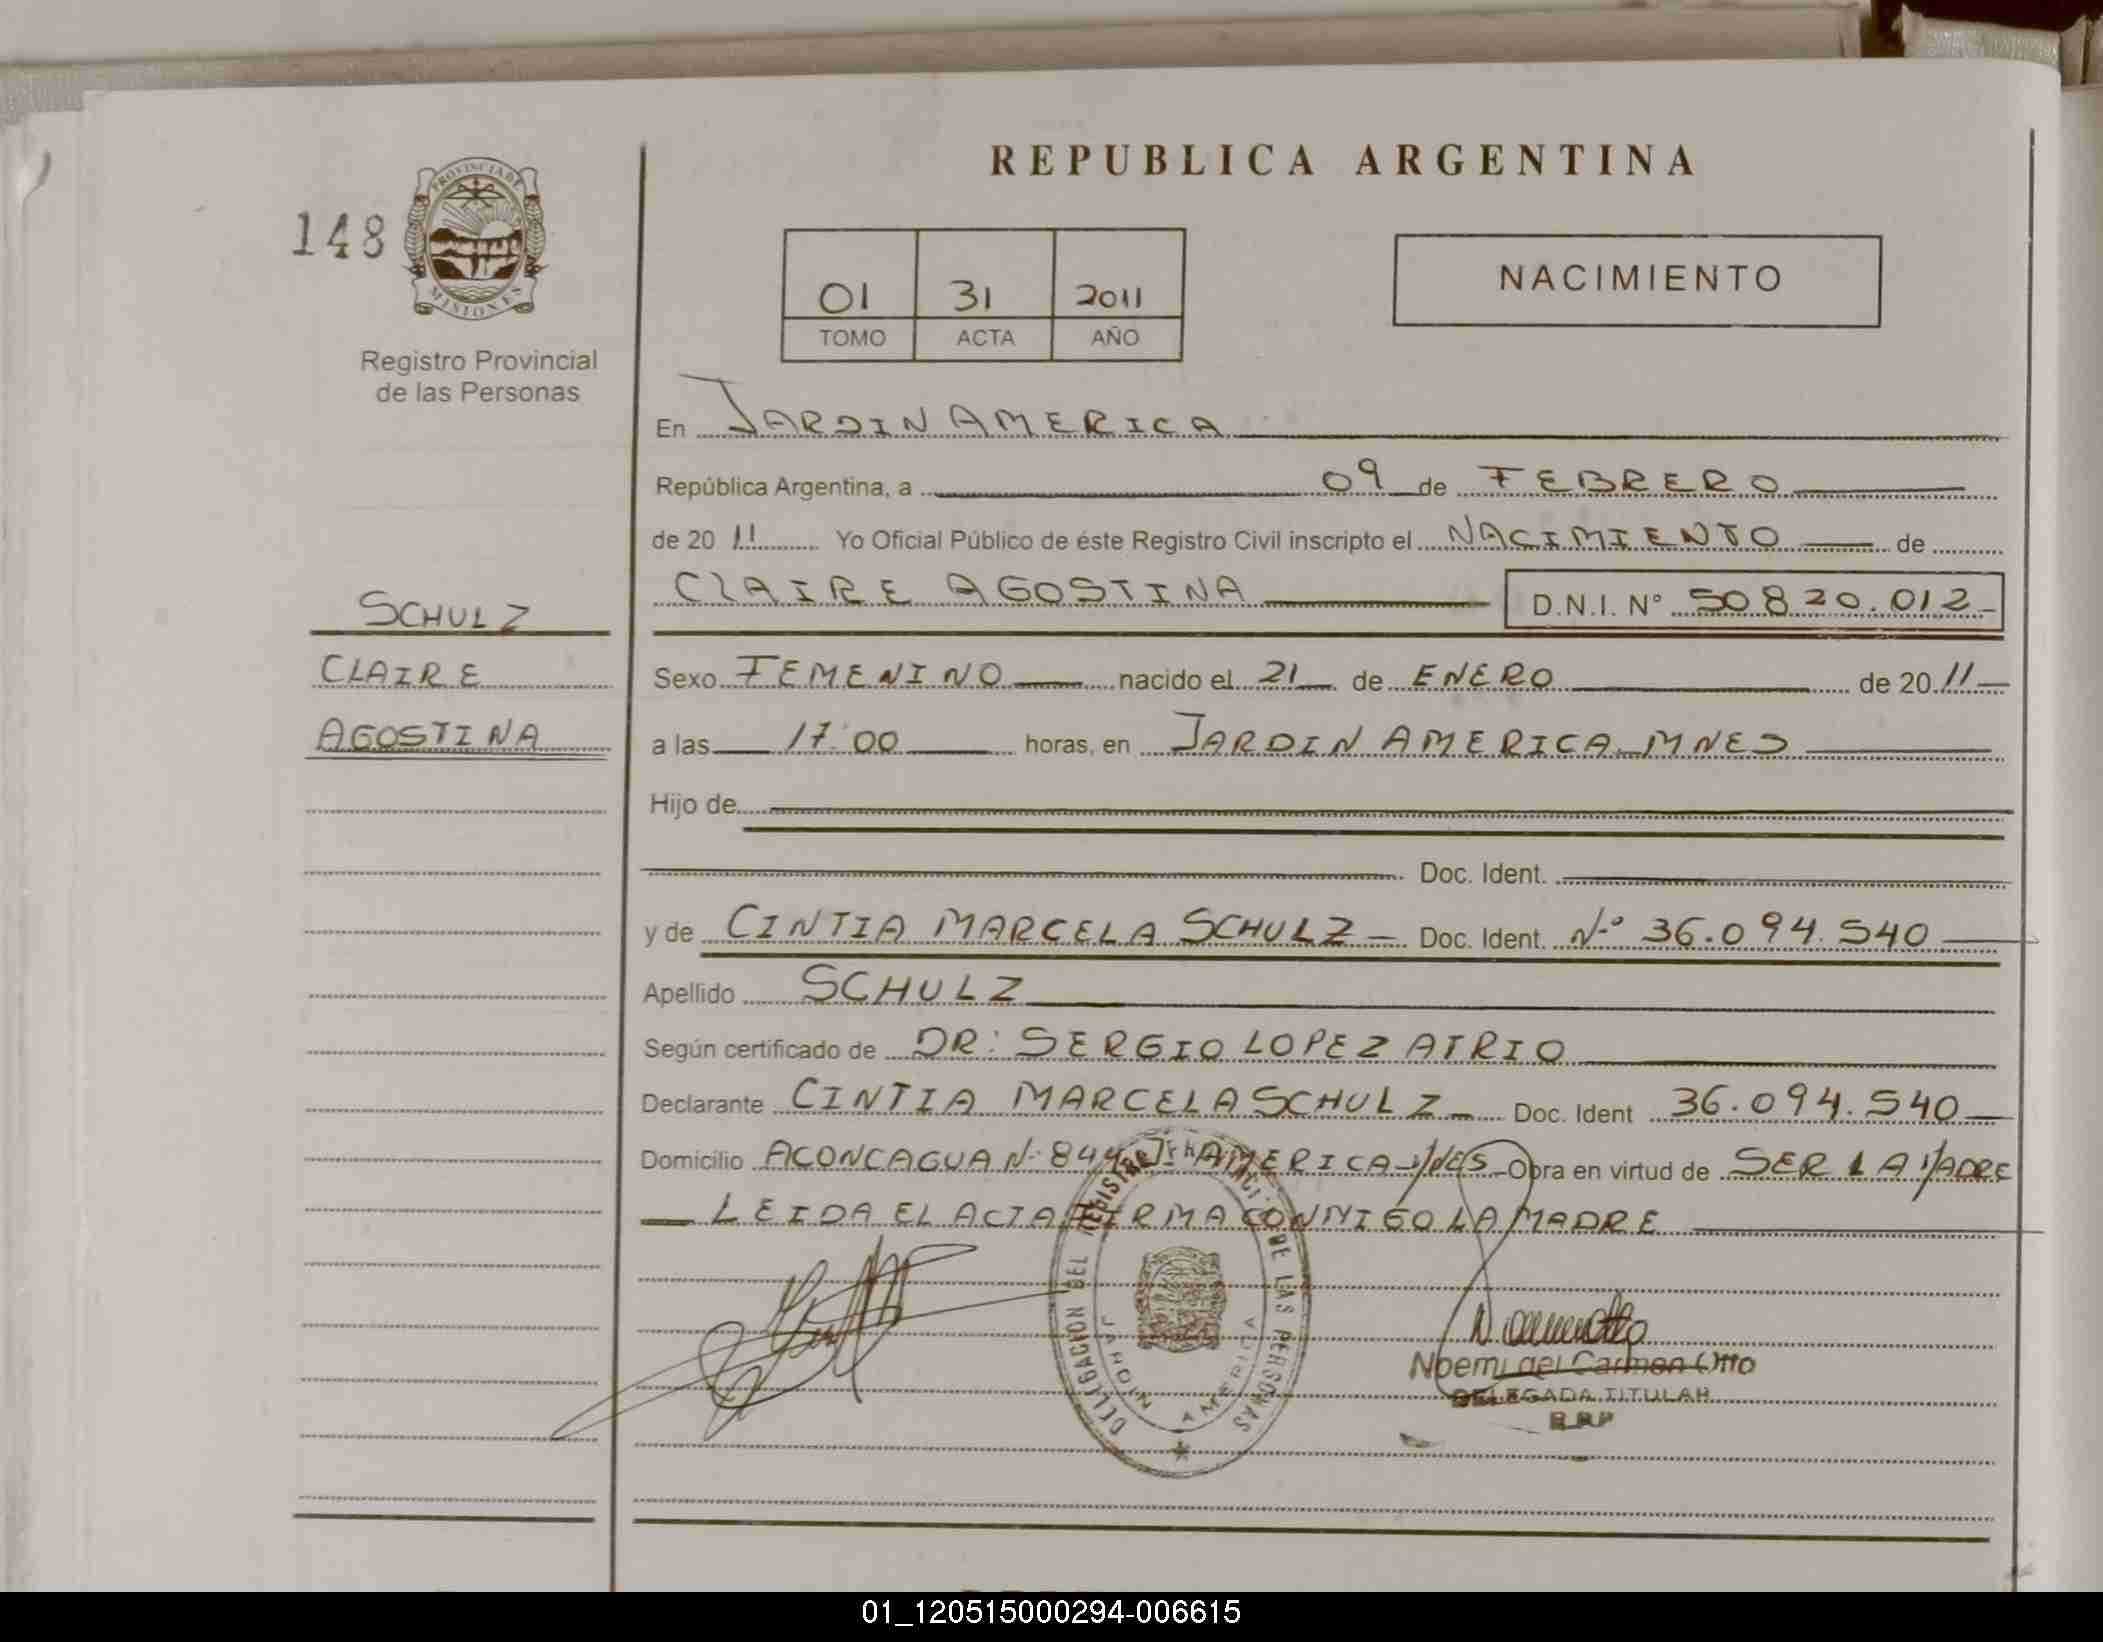 REPUBLICA ARGENTINA
148
PROVINCIA DE
MISIONES
Registro Provincial
de las Personas
01 31 2011
TOMO ACTA AÑO
NACIMIENTO
En JARDIN AMERICA
República Argentina, a 09 de FEBRERO
de 20 11 Yo Oficial Público de éste Registro Civil inscripto el NACIMIENTO de
CLAIRE AGOSTINA D.N.I. Nº 50820.012
SCHULZ
CLAIRE
AGOSTINA
Sexo FEMENINO nacido el 21 de ENERO de 20 11
a las 17:00 horas, en JARDIN AMERICA MNES
Hijo de
Doc. Ident.
y de CINTIA MARCELA SCHULZ Doc. Ident. Nº 36.094.540
Apellido SCHULZ
Según certificado de DR: SERGIO LOPEZ ATRIO
Declarante CINTIA MARCELA SCHULZ Doc. Ident 36.094.540
Domicilio ACONCAGUA Nº AMERICA Obra en virtud de SER LA MADRE
LEIDA EL ACTA FIRMA CONMIGO LA MADRE
DELEGACION DEL REGISTRO DE LAS PERSONAS
JARDIN AMERICA
Noemi del Carmen Otto
DELEGADA TITULAR
R.P.P
01_120515000294-006615